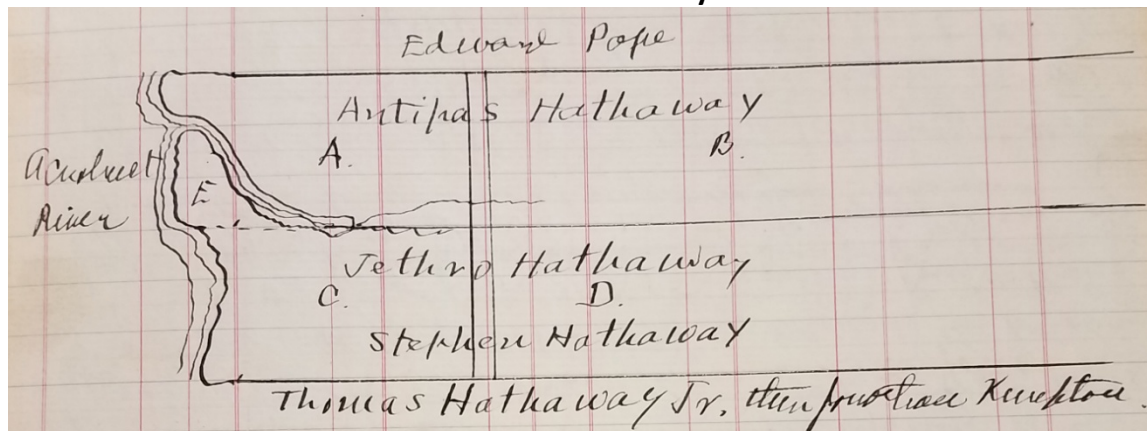 Edward Pope
Antipas Hathaway
A. B.
Acushnet
River
E
Jethro Hathaway
C. D.
Stephen Hathaway
Thomas Hathaway Jr. then Jonathan Kempton